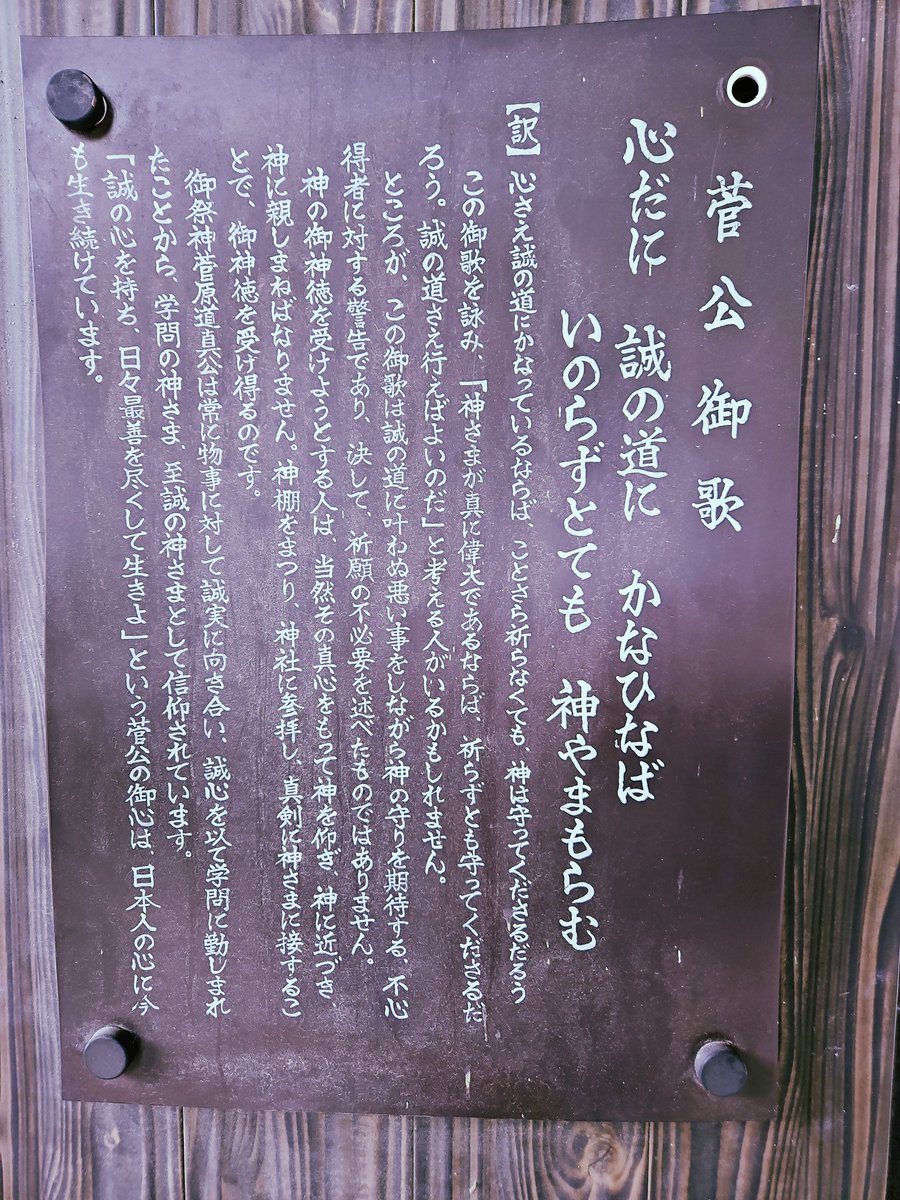 菅公御歌
心だに 誠の道に かなひなば
いのらずとても 神やまもらむ
【訳】心さえ誠の道にかなっているならば、ことさら祈らなくても、神は守ってくださるだろう
この御歌を詠み、「神さまが真に偉大であるならば、祈らずとも守ってくださるだ
ろう。誠の道さえ行えばよいのだ」と考える人がいるかもしれません。
ところが、この御歌は誠の道に叶わぬ悪い事をしながら神の守りを期待する、不心
得者に対する警告であり、決して、祈願の不必要を述べたものではありません。
神の御神徳を受けようとする人は、当然その真心をもって神を仰ぎ、神に近づき、
神に親しまねばなりません。神棚をまつり、神社に参拝し、真剣に神さまに接するこ
とで、御神徳を受け得るのです。
御祭神菅原道真公は常に物事に対して誠実に向き合い、誠心を以て学問に勤しまれ
たことから、学問の神さま、至誠の神さまとして信仰されています。
「誠の心を持ち、日々最善を尽くして生きよ」という菅公の御心は、日本人の心に今
も生き続けています。